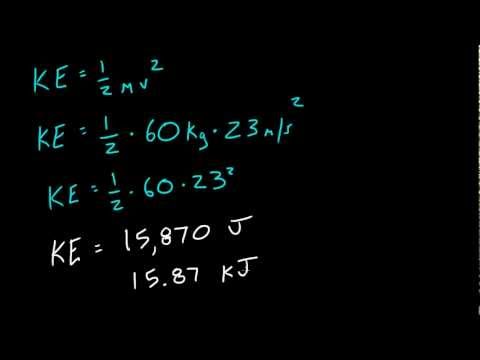 KE = 1/2 mv²
KE = 1/2 · 60 kg · 23 m/s²
KE = 1/2 · 60 · 23²
KE = 15,870 J
15.87 kJ